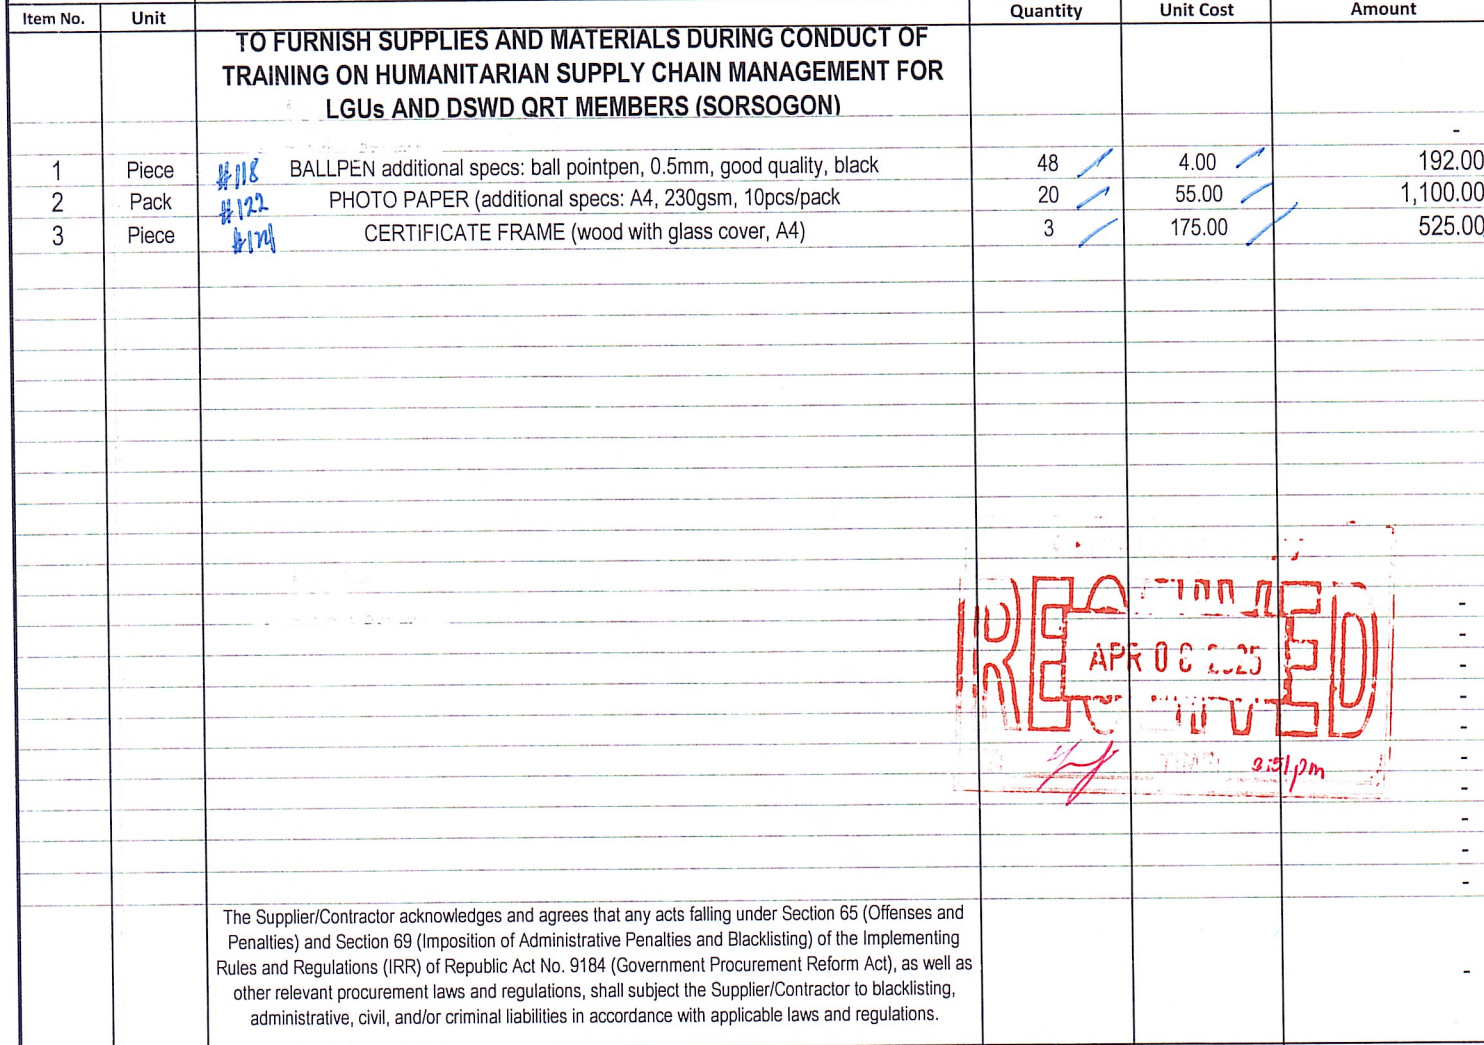 Item No. Unit Quantity Unit Cost Amount
TO FURNISH SUPPLIES AND MATERIALS DURING CONDUCT OF
TRAINING ON HUMANITARIAN SUPPLY CHAIN MANAGEMENT FOR
LGUs AND DSWD QRT MEMBERS (SORSOGON)
-
1 Piece #118 BALLPEN additional specs: ball pointpen, 0.5mm, good quality, black 48 4.00 192.00
2 Pack #122 PHOTO PAPER (additional specs: A4, 230gsm, 10pcs/pack 20 55.00 1,100.00
3 Piece CERTIFICATE FRAME (wood with glass cover, A4) 3 175.00 525.00
-
-
-
-
-
-
-
-
-
-
RECEIVED
APR 0 2025
3:51pm
The Supplier/Contractor acknowledges and agrees that any acts falling under Section 65 (Offenses and
Penalties) and Section 69 (Imposition of Administrative Penalties and Blacklisting) of the Implementing
Rules and Regulations (IRR) of Republic Act No. 9184 (Government Procurement Reform Act), as well as
other relevant procurement laws and regulations, shall subject the Supplier/Contractor to blacklisting,
administrative, civil, and/or criminal liabilities in accordance with applicable laws and regulations.
-